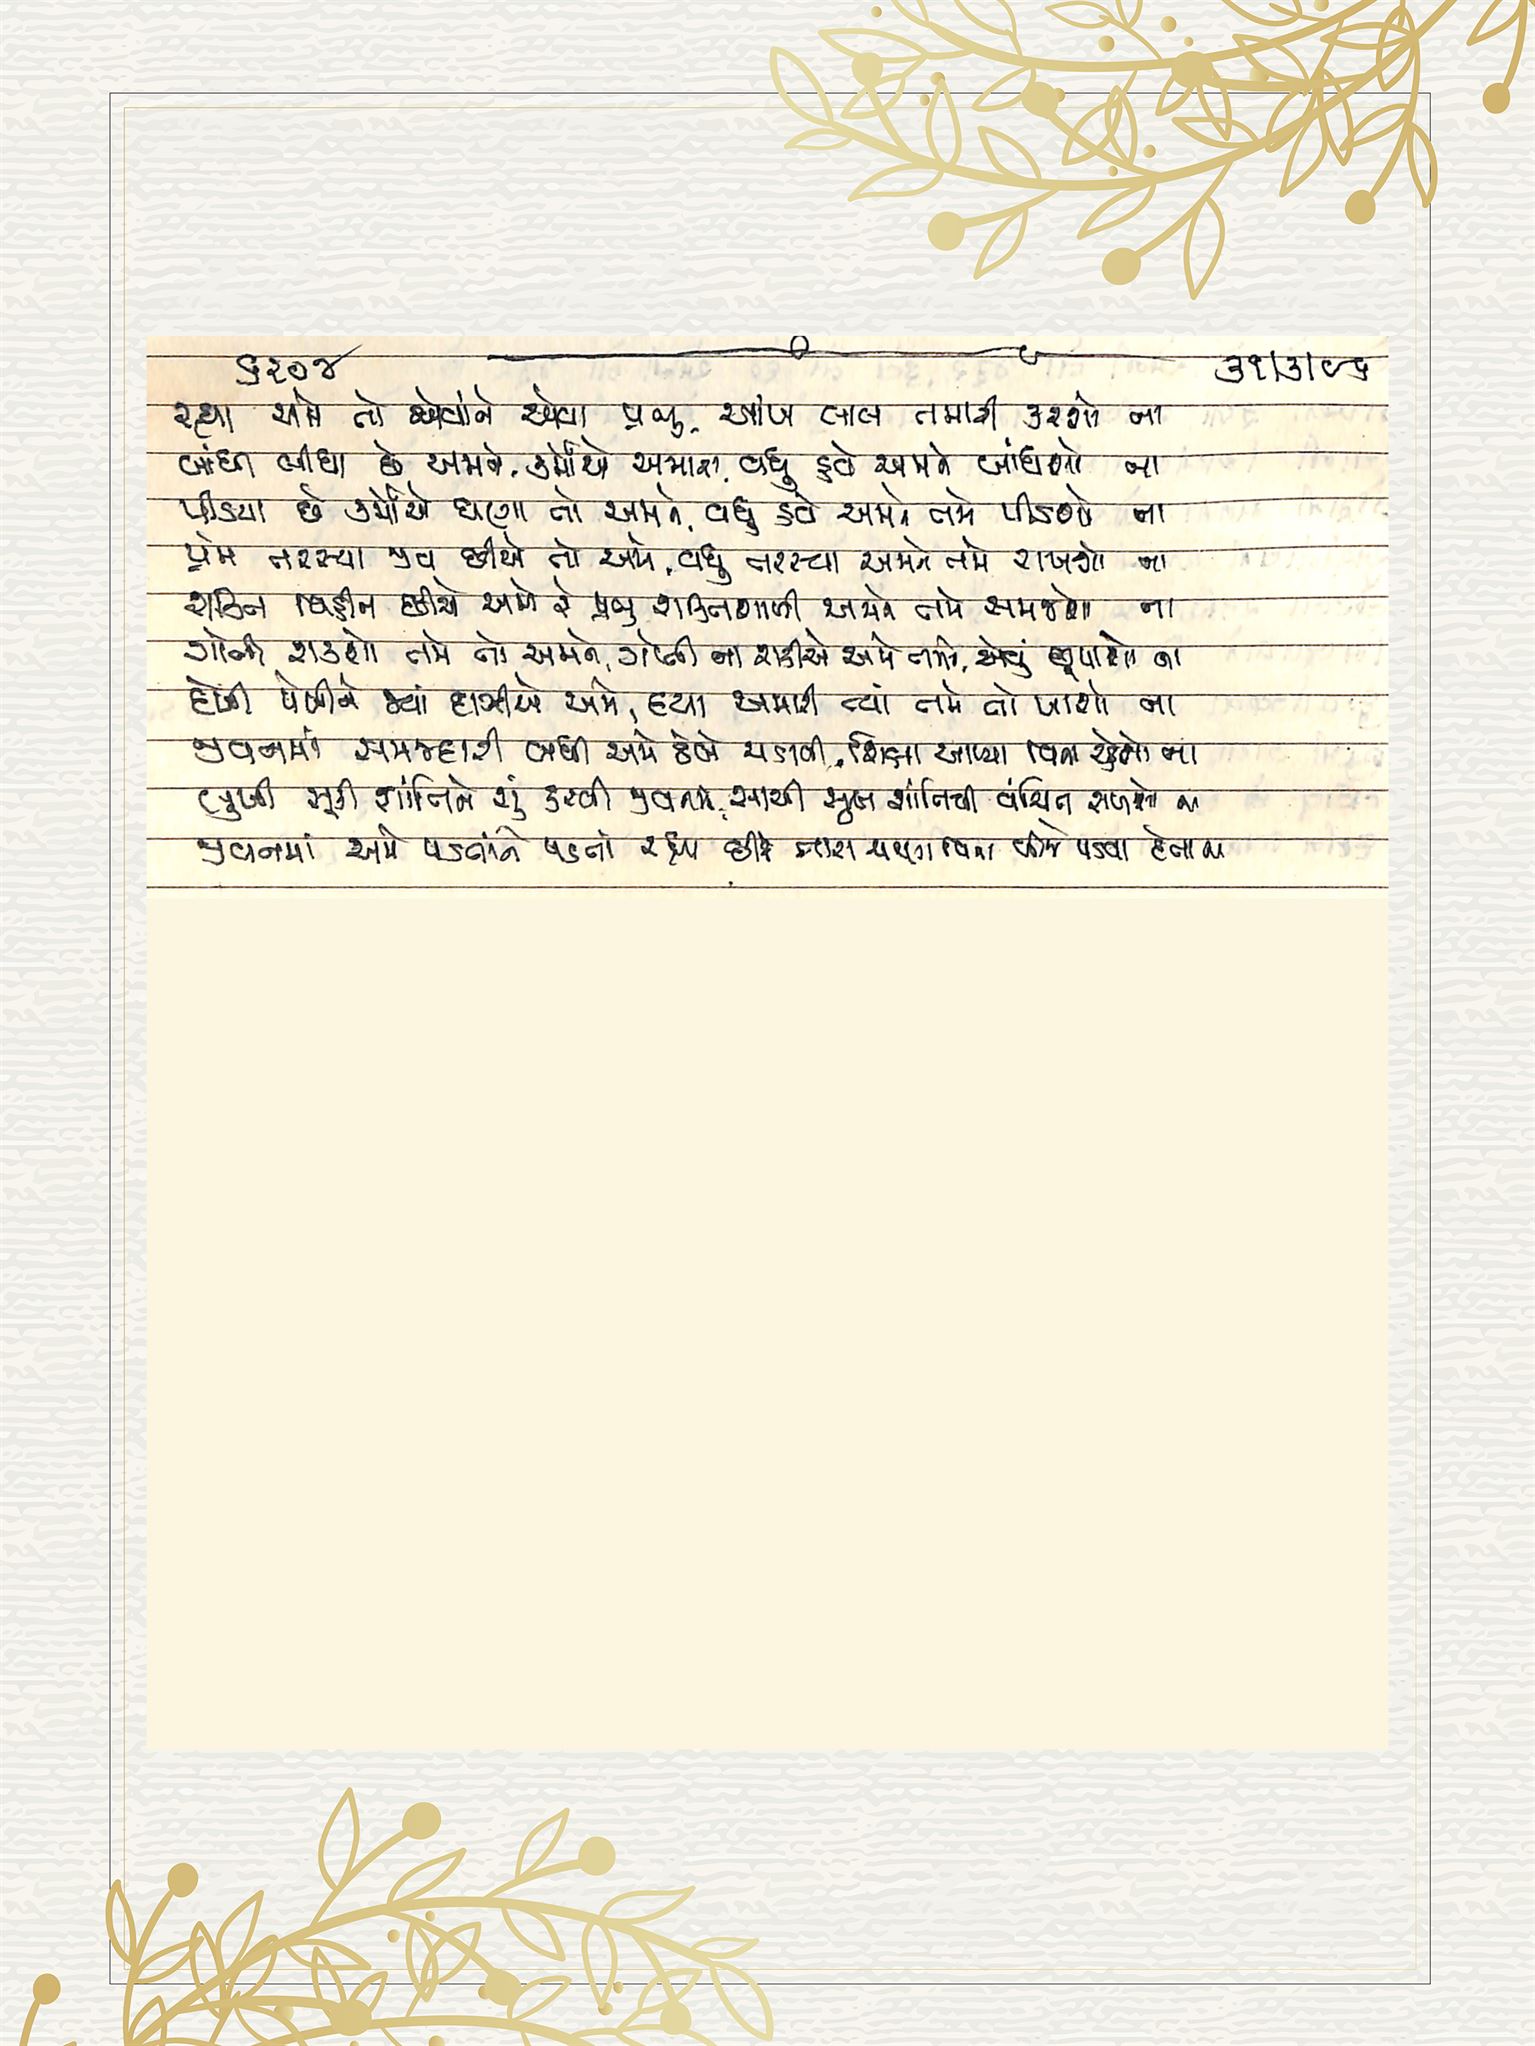 ૬૨૦૪ ૩૧/૩/૯૬
રહ્યા અમે તો એવાંને એવા પ્રભુ, આંખ લાલ તમારી કરશો ના
બાંધી લીધા છે અમને, કર્મોએ અમારા, વધુ હવે અમને બાંધશો ના
પીડયા છે કર્મોએ ઘણા તો અમને, વધુ હવે અમને તમે પીડશો ના
પ્રેમ તરસ્યા જીવ છીએ તો અમે, વધુ તરસ્યા અમને તમે રાખશો ના
શક્તિ વિહીન છીએ અમે રે પ્રભુ શક્તિશાળી અમને તમે સમજશો ના
ગોતી શકશો તમે તો અમને, ગોતી ના શકીએ અમે તમને, એવું છુપાશો ના
દોડી દોડીને જ્યાં હાંફીએ અમે, દયા અમારી ત્યાં તમે તો ખાશો ના
જીવનમાં સમજદારી બધી અમે ઠેબે ચડાવી, શિક્ષા આપ્યા વિના રહેશો ના
લુખી સૂકી શાંતિને શું કરવી જીવનમાં, સાચી સુખ શાંતિથી વંચિત રાખશો ના
જીવનમાં અમે પડતાંને પડતાં રહ્યા છીએ તારા ચરણ વિના બીજે પડવા દેતા ના